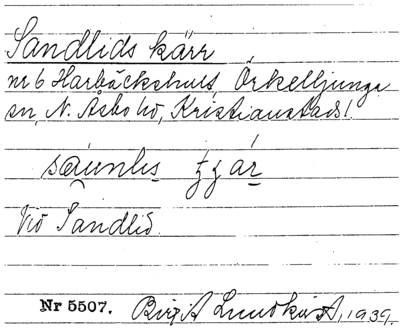 Sandlids kärr
nr 6 Harbäckshult, Örkelljunga
sn, N. Åsbo hd, Kristianstads l.
Vid Sandlid.
Nr 5507. Birgit Lundkvist, 1939.